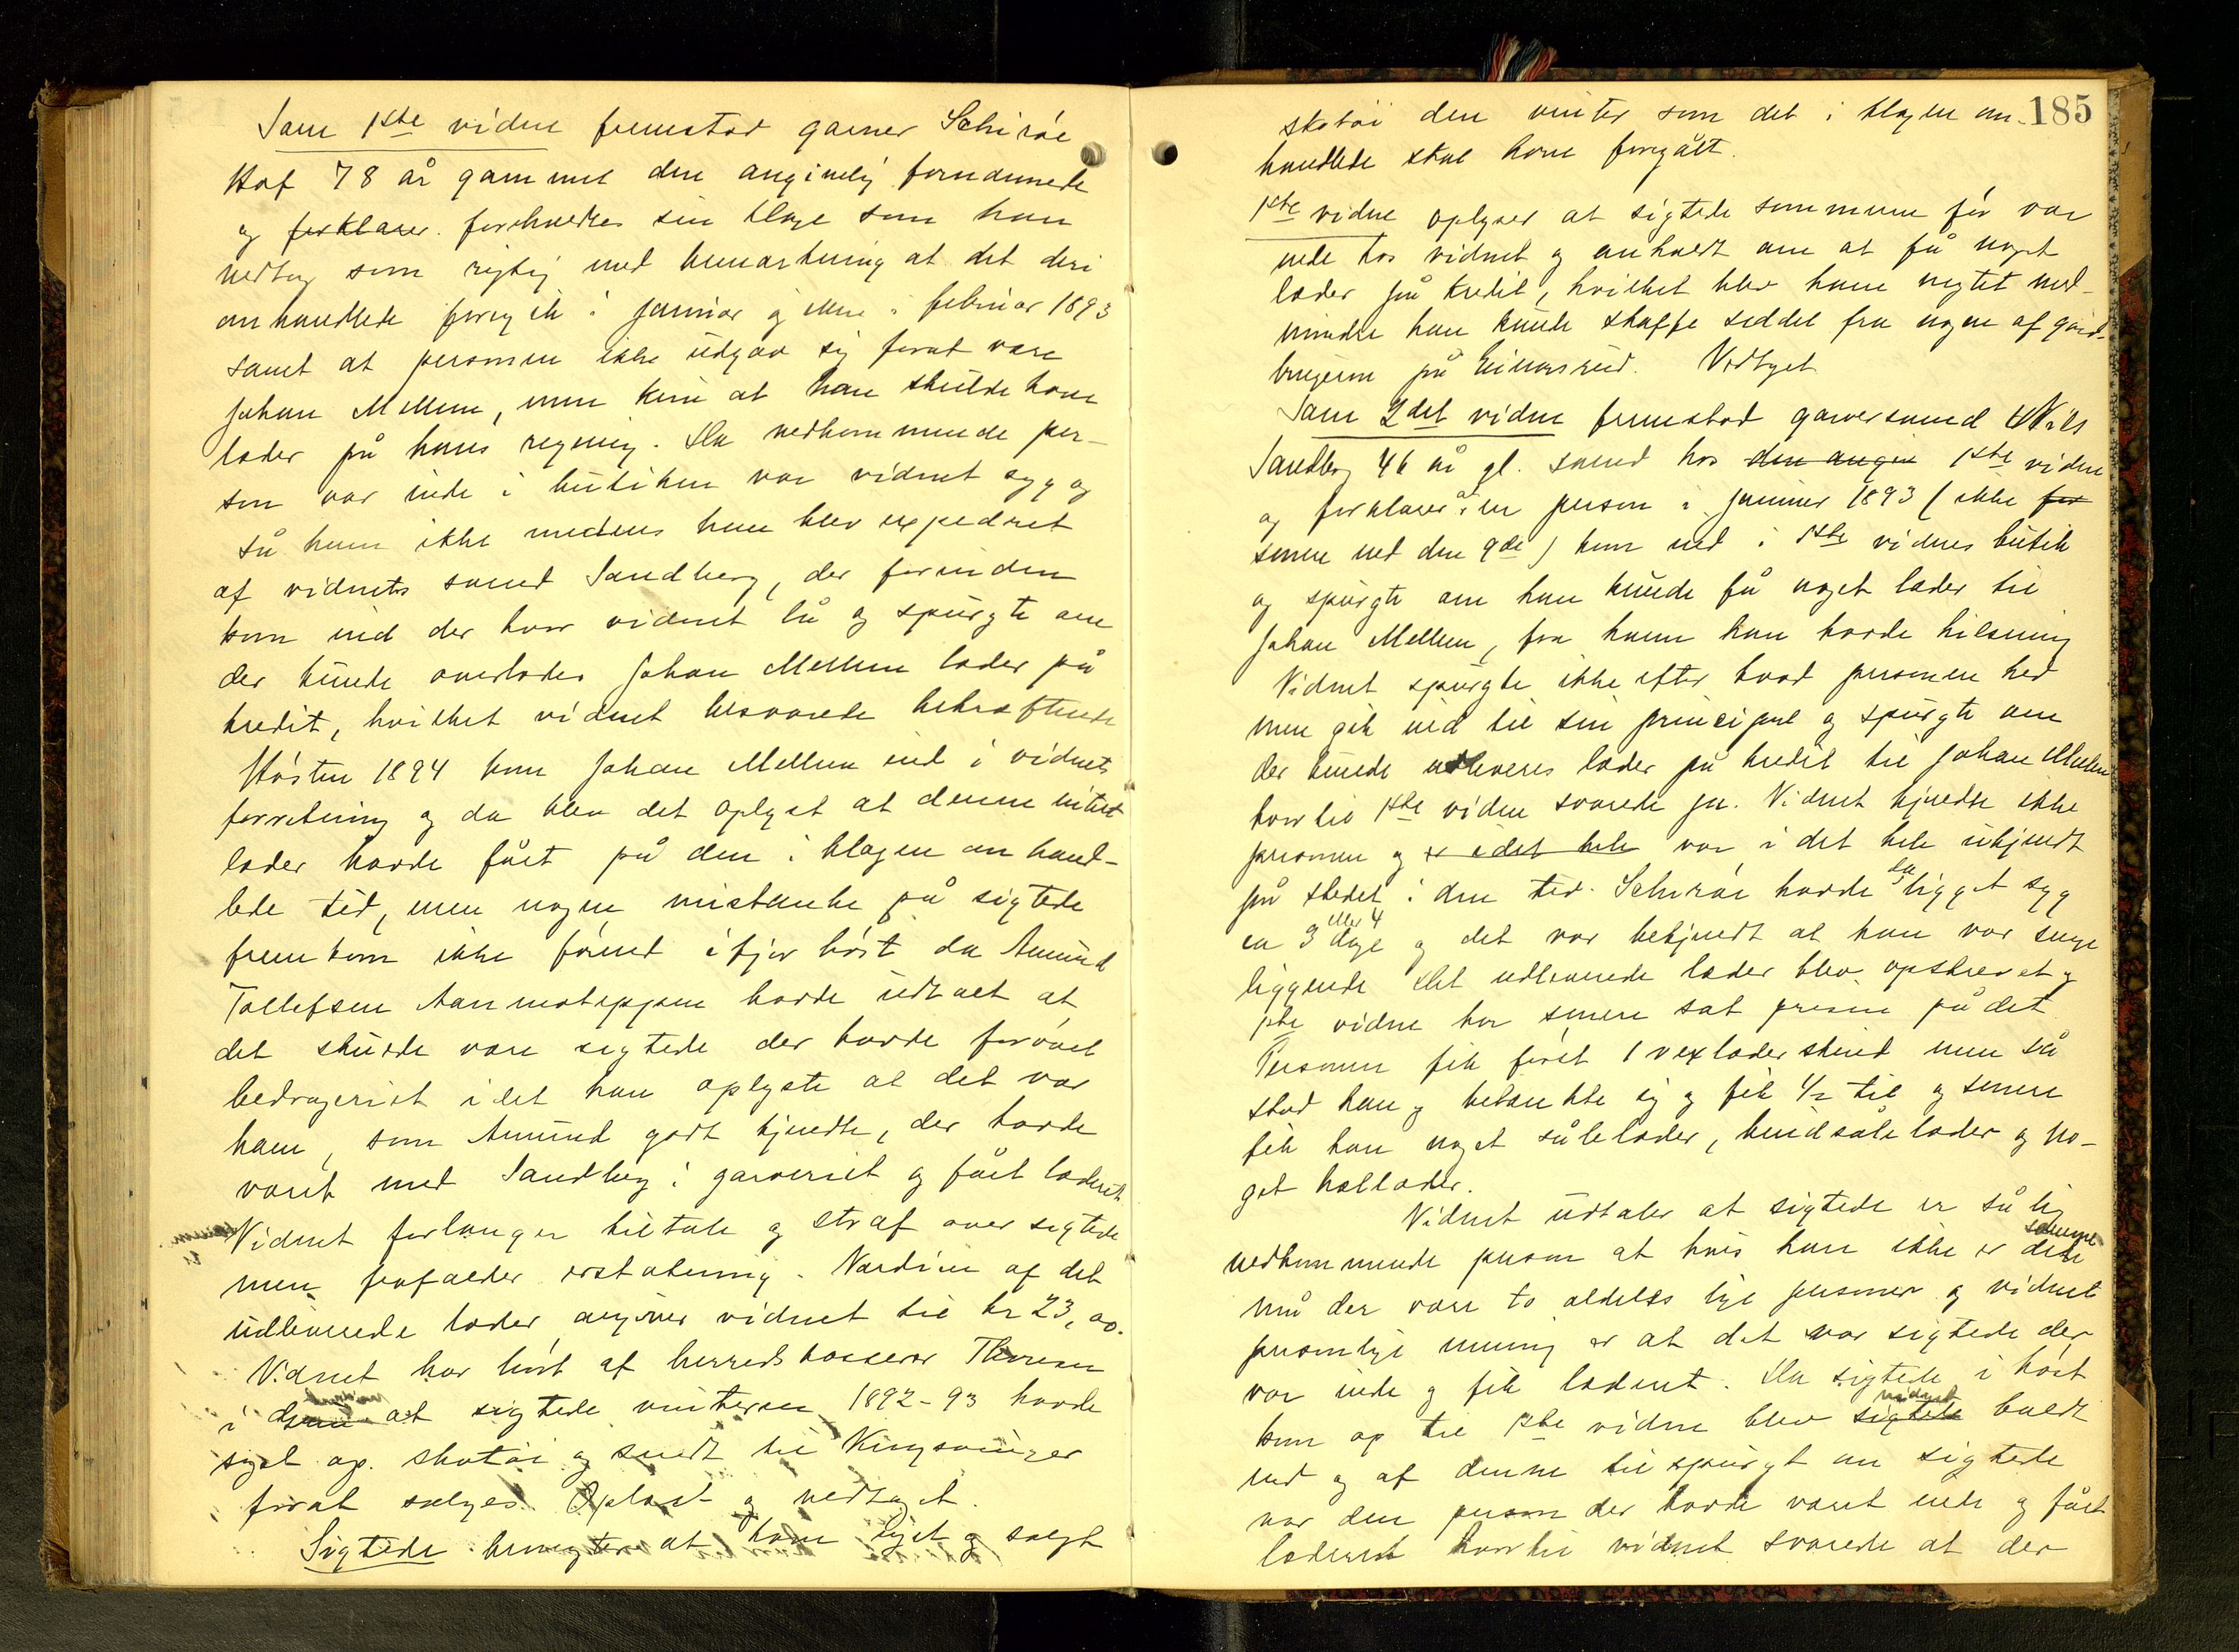 Som 1ste vidne fremstod garver Schirøe
Hof 78 år gammel den angivelig fornærmede
og forklarer. foreholdtes sin klage som han
vedtog som rigtig med bemærkning at det deri
omhandlede foregik i januar og ikke i februar 1893
samt at personen ikke udgav sig forat være
Johan Mellem, men kun at han skulde have
læder på hans regning. Da vedkommende per-
son var inde i butiken var vidnet syg og
så ham ikke medens han blev expederet
af vidnets svend Sandberg, der forinden
kom ind der hvor vidnet lå og spurgte om
der kunde overlades Johan Mellem læder på
kredit, hvilket vidnet besvarede bekræftende
Høsten 1894 kom Johan Mellem ind i vidnets
forretning og da blev det oplyst at denne intet
læder havde fået på den i klagen omhand-
lede tid, men nogen mistanke på sigtede
fremkom ikke førend ifjor høst da Amund
Tollefsen havde udtalt at
det skulde være sigtede der havde forøvet
bedrageriet idet han oplyste at det var
ham, som Amund godt kjendte, der havde
været med Sandberg i garveriet og fået læderet.
Vidnet forlanger tiltale og straf over sigtede
men frafalder erstatning. Værdien af det
udleverede læder angiver vidnet til kr 23,00.
Vidnet har hørt af herredskasserer Thoresen
i at sigtede vinteren 1892-93 havde
syet op skotøi og sendt til Kingsvinger
forat sælges. Oplæst og vedtaget.
Sigtede benegter at have syet og solgt
185
skotøi den vinter som det i klagen om-
handlede skal have foregået.
1ste vidne oplyser at sigtede sommeren før var
nede hos vidnet og anholdt om at få noget
læder på kredit, hvilket blev ham negtet med-
mindre han kunde skaffe seddel fra nogen af gård-
brugerne på Vedtaget
Som 2det vidne fremstod garversvend Nils
Sandberg 46 år gl. svend hos den angiv 1ste vidne
og forklarer: en person i januar 1893 (ikke for
senere end den 9de) kom ind i 1ste vidnes butik
og spurgte om han kunde få noget læder til
Johan Mellem, fra hvem han havde hilsning
Vidnet spurgte ikke efter hvad personen hed
men gik ind til sin principal og spurgte om
der kunde udleveres læder på kredit til Johan Mellem
hvortil 1ste vidne svarede ja. Vidnet kjendte ikke
personen og er i det hele var i det hele ukjendt
på stedet i den tid. Schirøe havde da ligget syg
ca 3 eller 4 dage og det var bekjendt at han var senge
liggende Det udleverede læder blev opskrevet og
1ste vidne har senere sat prisen på det
Personen fik først 1 vexlæderskind men så
stod han og betænkte sig og fik 1/2 til og senere
fik han noget sålelæder, bindsålelæder og no-
get hællæder.
Vidnet udtaler at sigtede er så lig
vedkommende person at hvis han ikke er den samme
må der være to aldeles lige personer og vidnets
personlige mening er at det var sigtede der
var inde og fik læderet. Da sigtede i høst
kom op til 1ste vidne blev sigtede vidnet kaldt
ind og af denne tilspurgt om sigtede
var den person der havde været inde og fået
læderet hvortil vidnet svarede at der